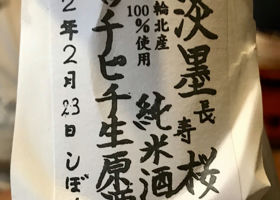 淡墨桜
長寿
純米酒
輪北産
100%使用
チピチ生原酒
2年2月23日しぼ